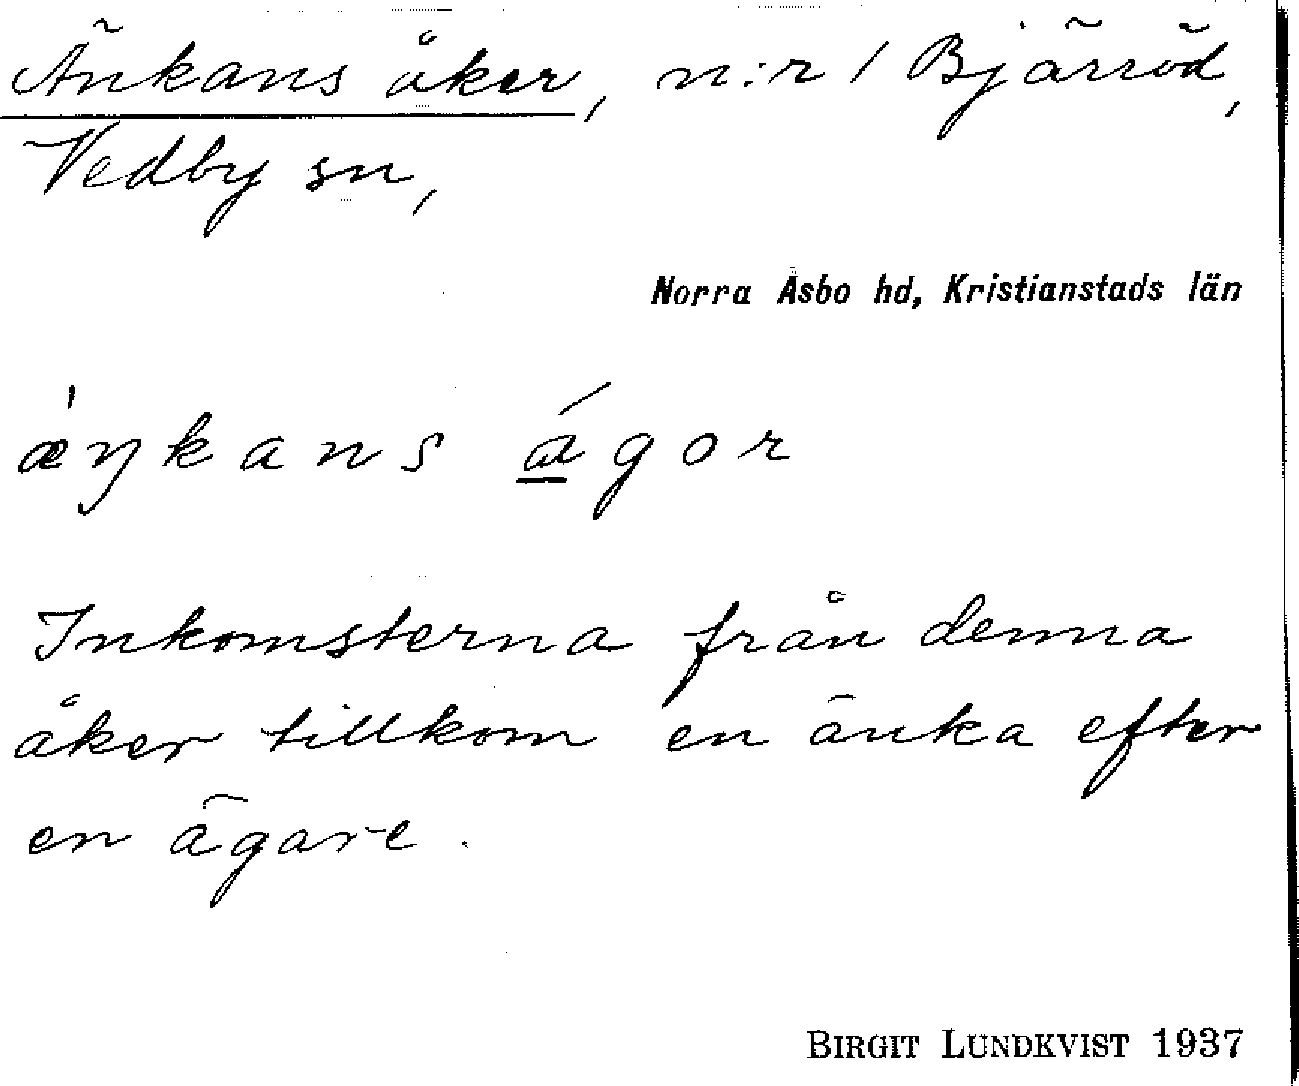 Änkans åker, n:r 1 Bjärröd,
Vedby sn,
Norra Åsbo hd, Kristianstads län
æ̀ŋkans á̱gor
Inkomsterna från denna
åker tillkom en änka efter
en ägare.
BIRGIT LUNDKVIST 1937